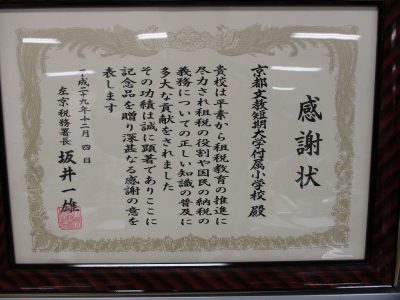 感謝状
京都文教短期大学付属小学校 殿
貴校は平素から租税教育の推進に
尽力され租税の役割や国民の納税の
義務についての正しい知識の普及に
多大な貢献をされました
その功績は誠に顕著でありここに
記念品を贈り深甚なる感謝の意を
表します
平成二十九年十二月 四 日
左京税務署長 坂井一雄